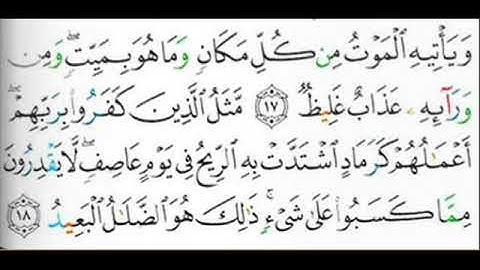 وَيَأْتِيهِ الْمَوْتُ مِن كُلِّ مَكَانٍ وَمَا هُوَ بِمَيِّتٍ ۖ وَمِن
وَرَآئِهِۦ عَذَابٌ غَلِيظٌ ۝١٧ مَّثَلُ الَّذِينَ كَفَرُوا۟ بِرَبِّهِمْ ۖ
أَعْمَـٰلُهُمْ كَرَمَادٍ اشْتَدَّتْ بِهِ الرِّيحُ فِى يَوْمٍ عَاصِفٍ ۖ لَّا يَقْدِرُونَ
مِمَّا كَسَبُوا۟ عَلَىٰ شَىْءٍ ۚ ذَٰلِكَ هُوَ الضَّلَـٰلُ الْبَعِيدُ ۝١٨